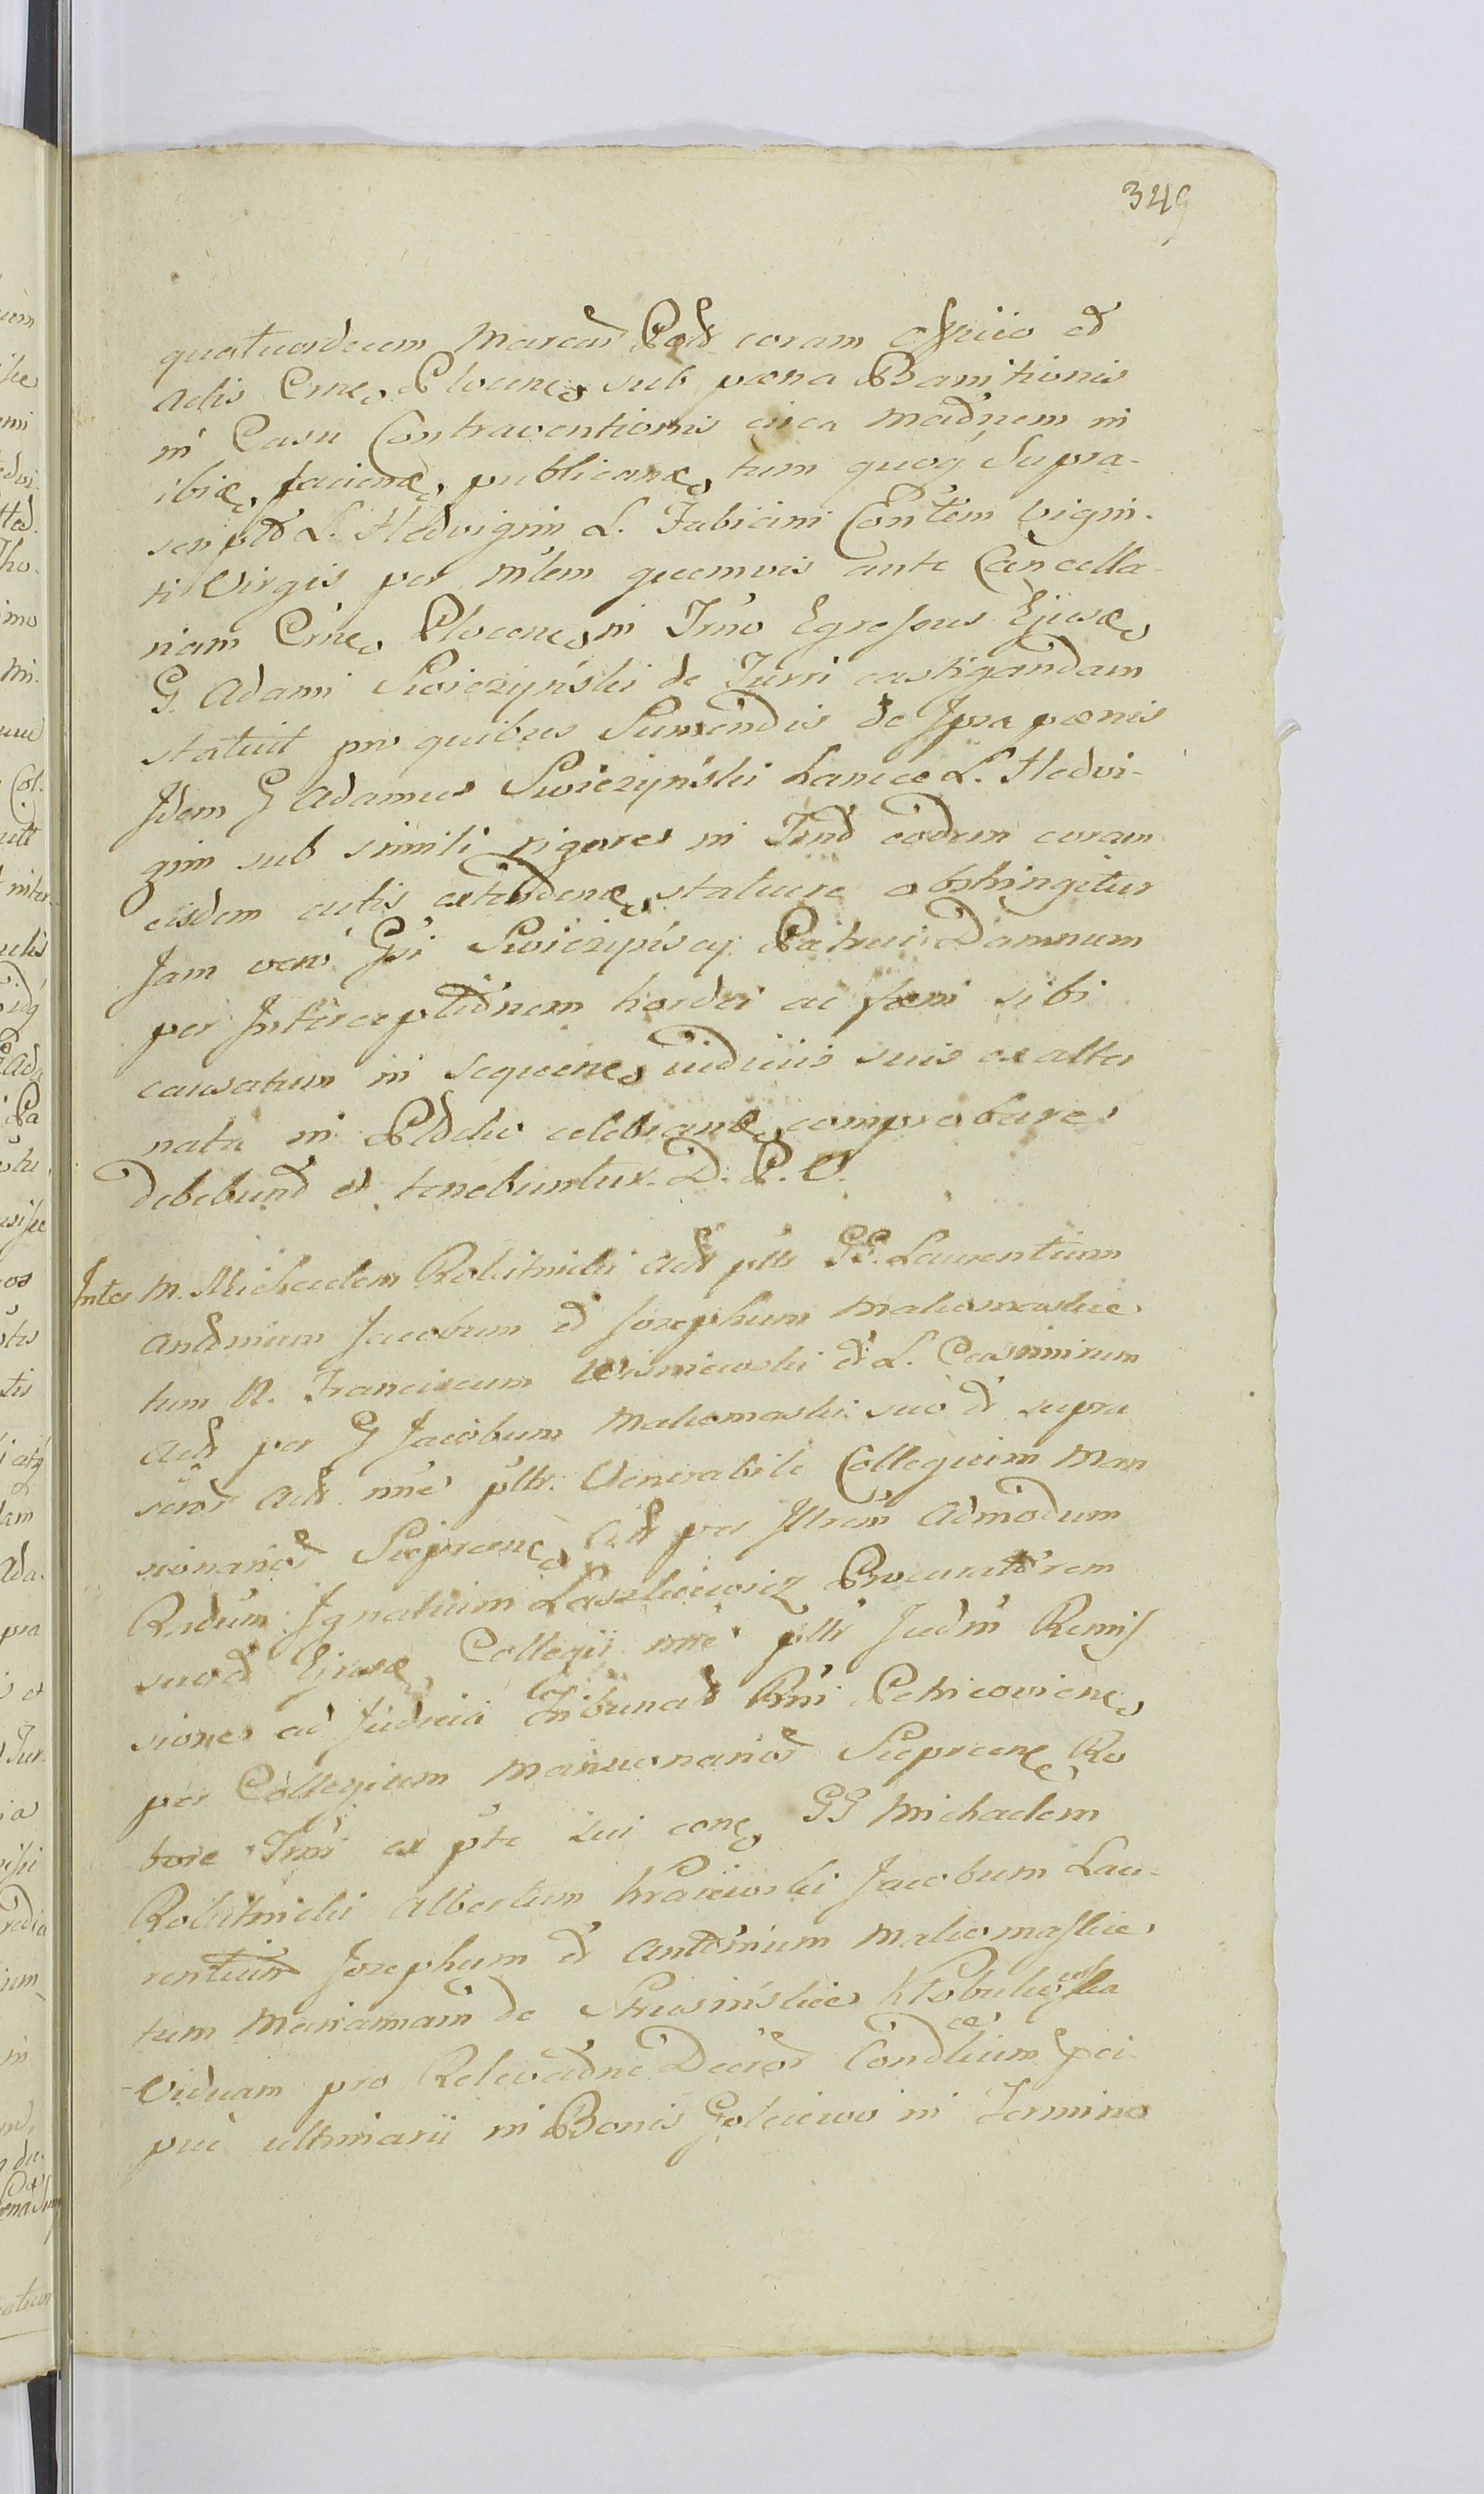 349
quatuordecim Marcar Pol coram Officio et
Actis Crne. Plocen. sub poena Banitionis
in Casu Contraventionis circa Madnem in
ibid. faciend. publicand. tum quoq Supra-
scriptd L. Hedvigim L. Fabiani Conttem vigin-
ti Virgis per Mlem quemvis ante Cancella-
riam Crne. Plocen. in Trno Egressus Ejusd.
G. Adami Swiezynski de Turri castigandam
statuit pro quibus Sumendis de Ipsa poenis
Idem G Adamus Swiezynski hance L. Hedvi-
gim sub simili rigore in Tmd eodem coram
eisdem actis extendend. statuere obstringitur
Jam vero Gsi Swiezynscy Patrui Damnum
per Interceptidnem hordei ac foeni sibi
causatum in sequen. iudiciis suis ex alter
nata in celebrand. comprobare
debebund et tenebuntur. D. P. O.
Inter M. Michaelem Rokitnicki Act ptt GG. Laurentium
Antonium Jacobum et Josephum Makomaskie
tum N. Franciscum Wisniewski et L. Casimirum
Act per G Jacobum Makomaski suo et supra
Act nne pltt. Venerabile Collegium Man
sionarior Sieprcen. Act per Illrem Admodum
Rndum Ignatium Laszkiewicz Procuratorem
suod Ejusd. Collegii nne pltt Judm Remis
sione ad Judicia Tribunal Rni Petricovien.
per Collegium Mansionarior Sieprcen. Ro
bore Trni ex pte sui con. GG Michaelem
Rokitnicki Albertum Kraiewski Jacobum Lau-
rentium Josephum et Antonium Makomaskie
tum Mariannam de
Viduam pro Relevadne Decror Condlium pci
pue ultimarii in Bonis Golejewo in Termino